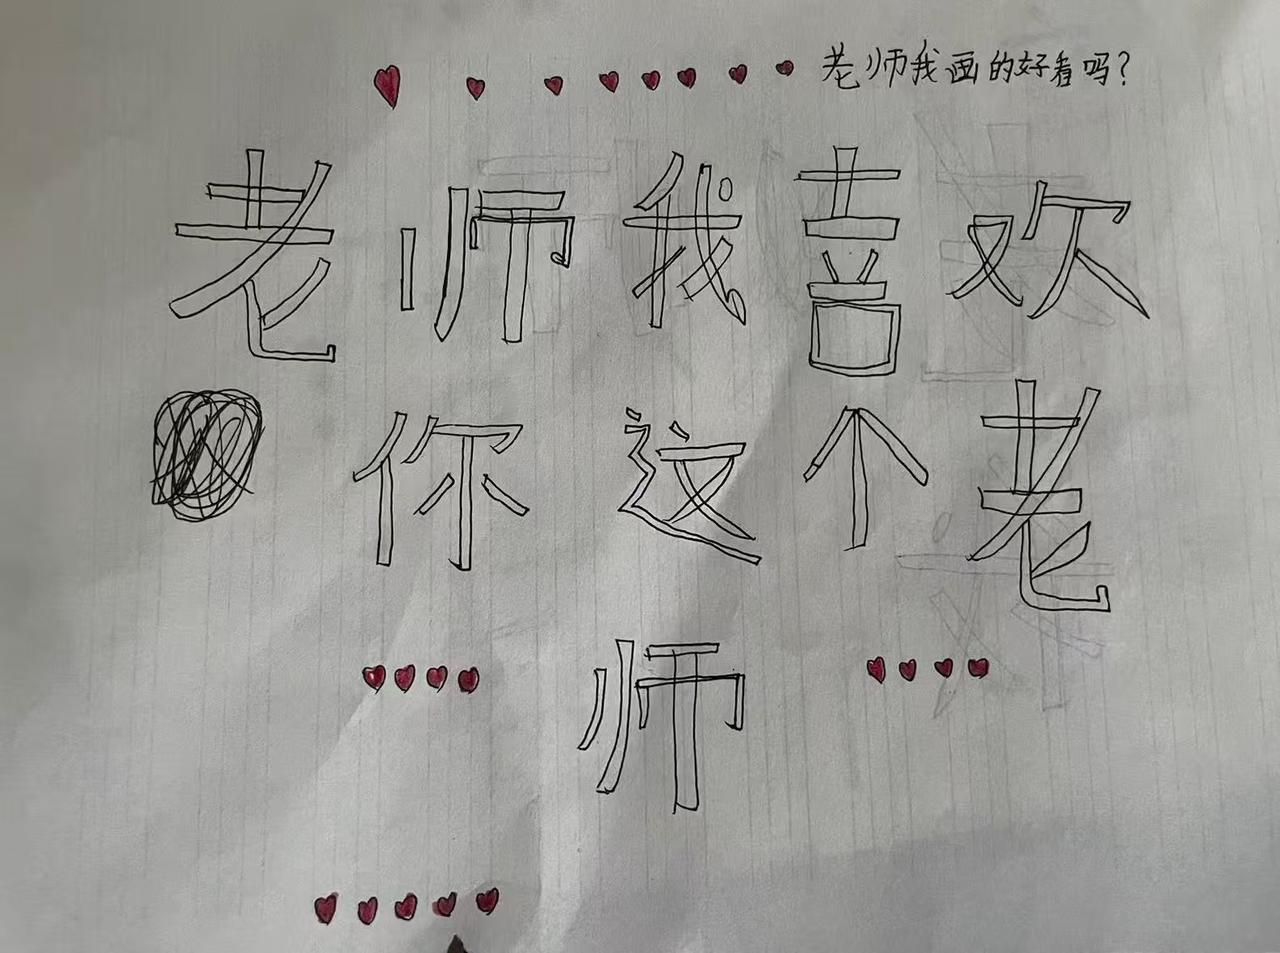 老师我画的好看吗?
老师我喜欢
你这个老
师